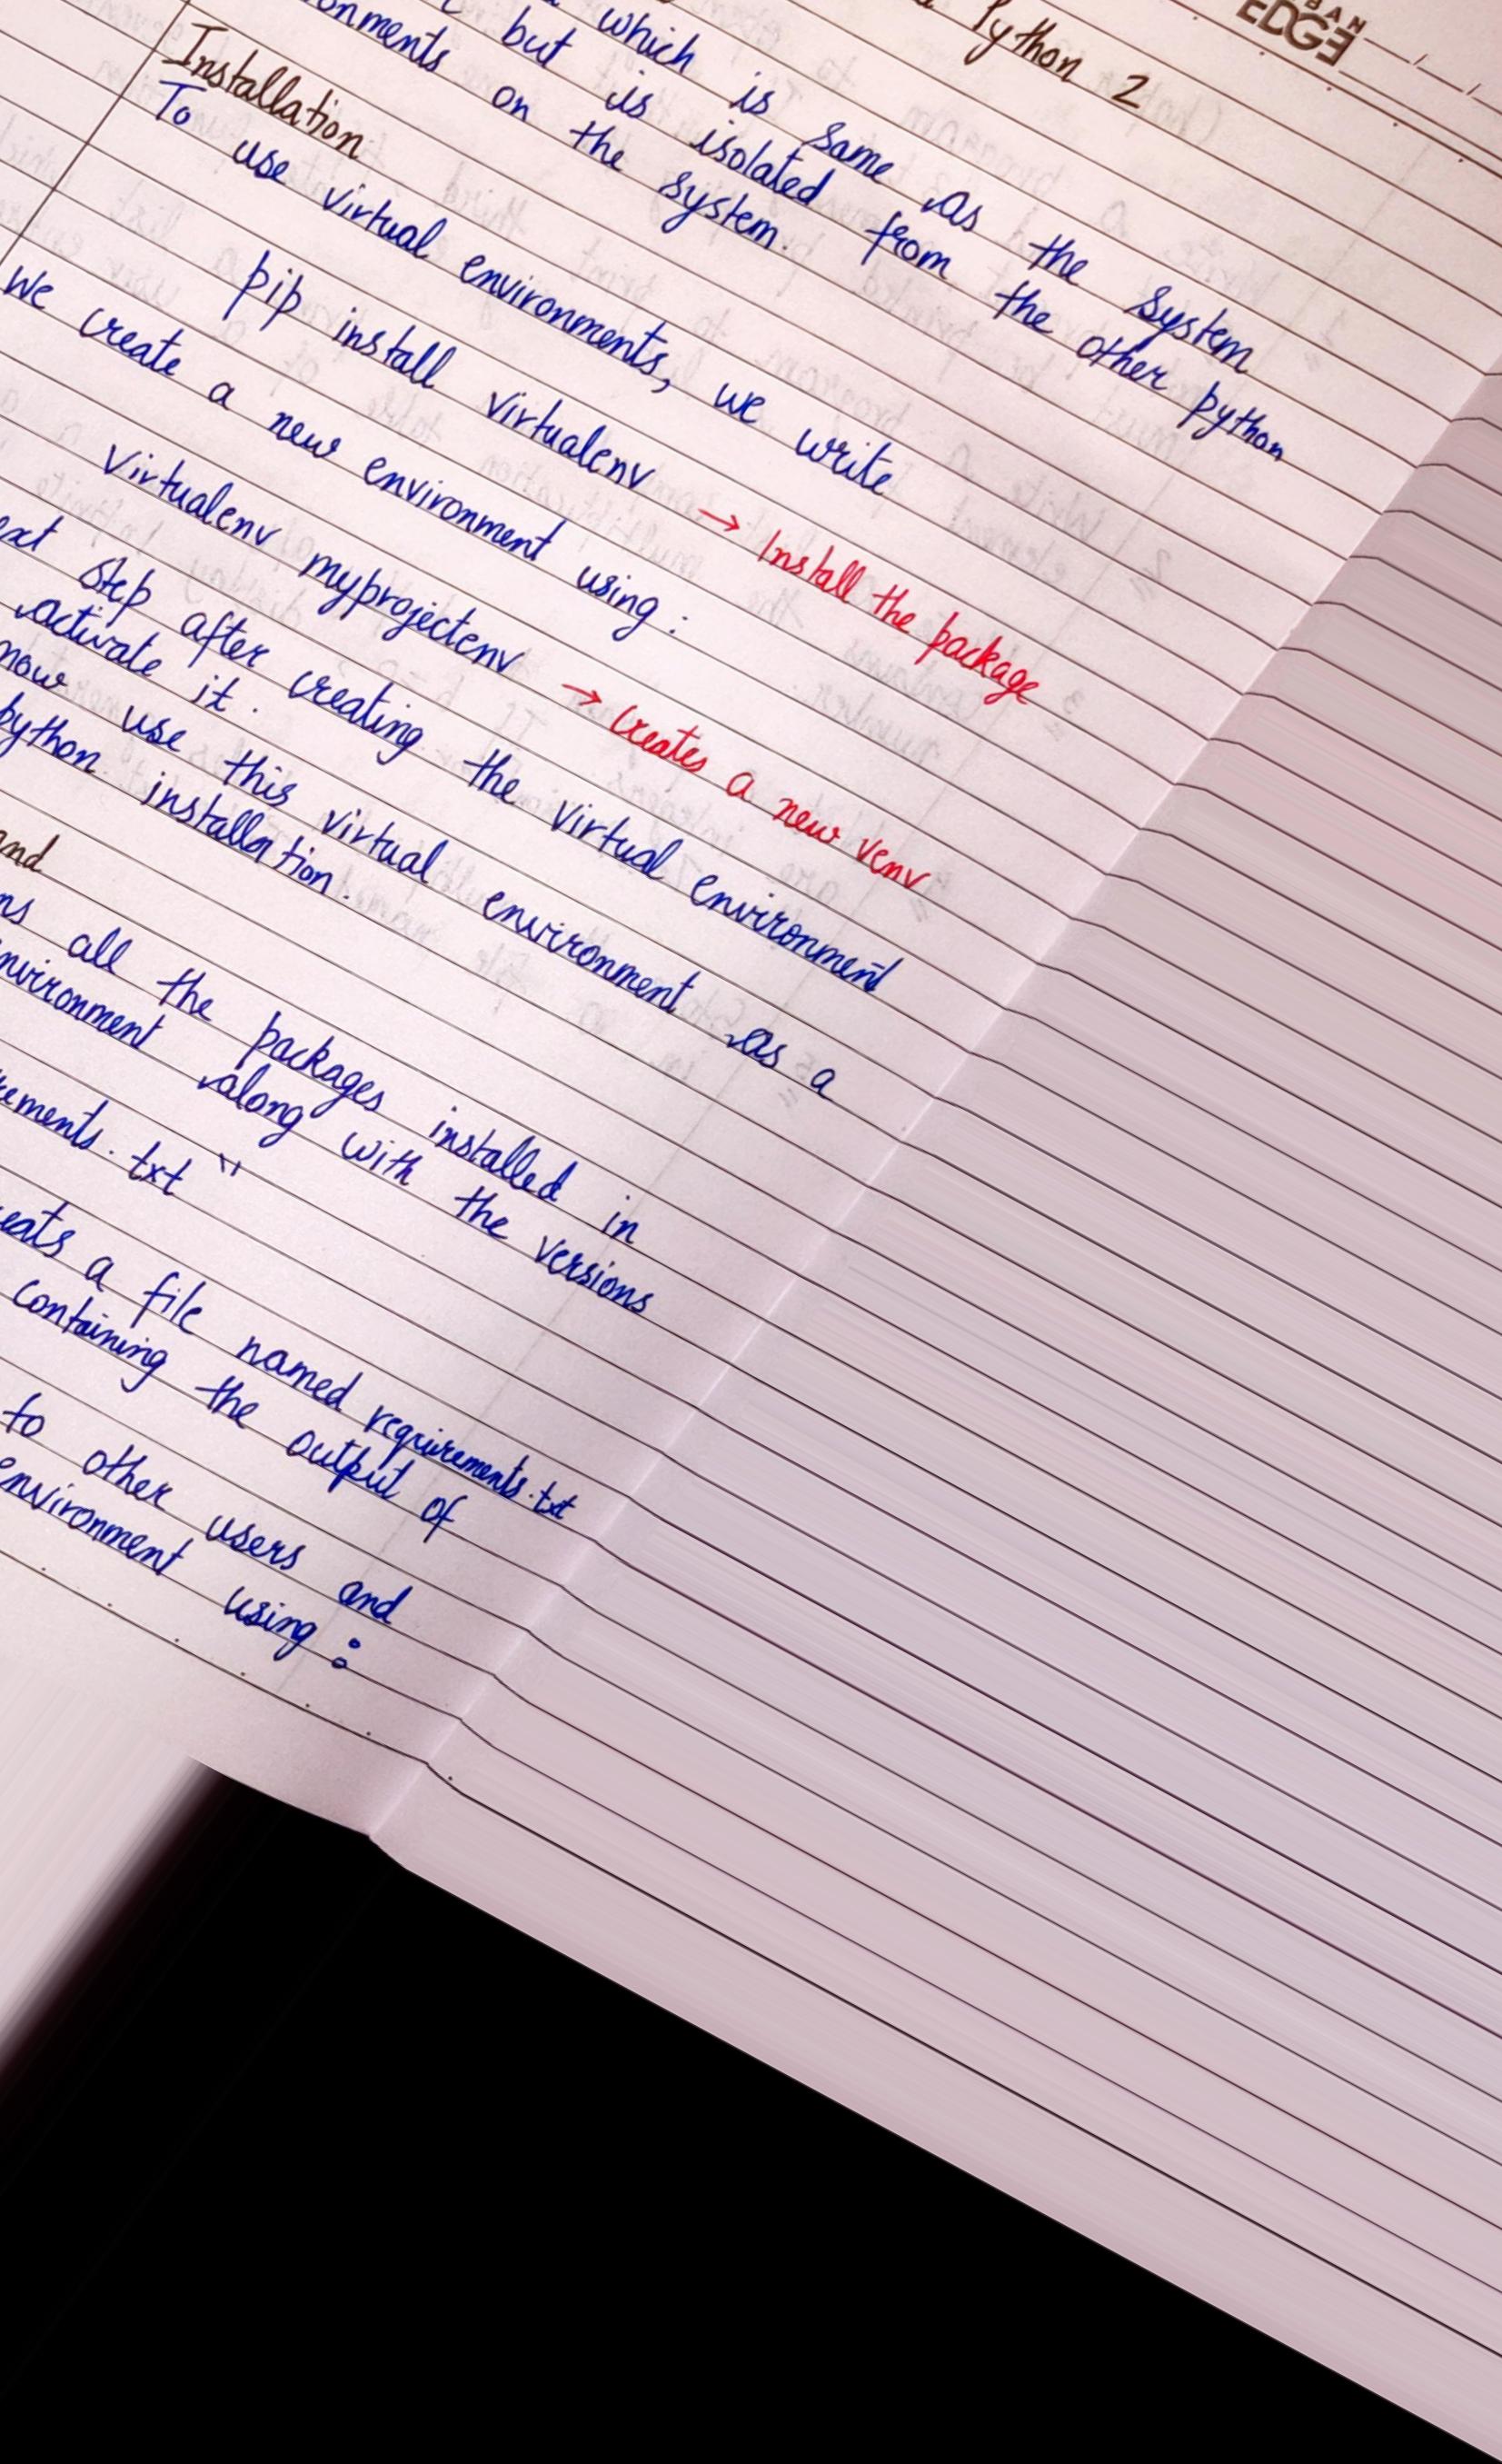 Python 2
BAN
EDGE
which is same as the system
but is isolated from the other python
on the system.
Installation
To use virtual environments, we write
pip install virtualenv → Install the package
We create a new environment using:
Virtualenv myprojectenv → Creates a new venv
step after creating the virtual environment
activate it.
now use this virtual environment as a
python installation.
all the packages installed in
along with the versions
.txt "
a file named requirements.txt
containing the output of
to other users and
environment using: